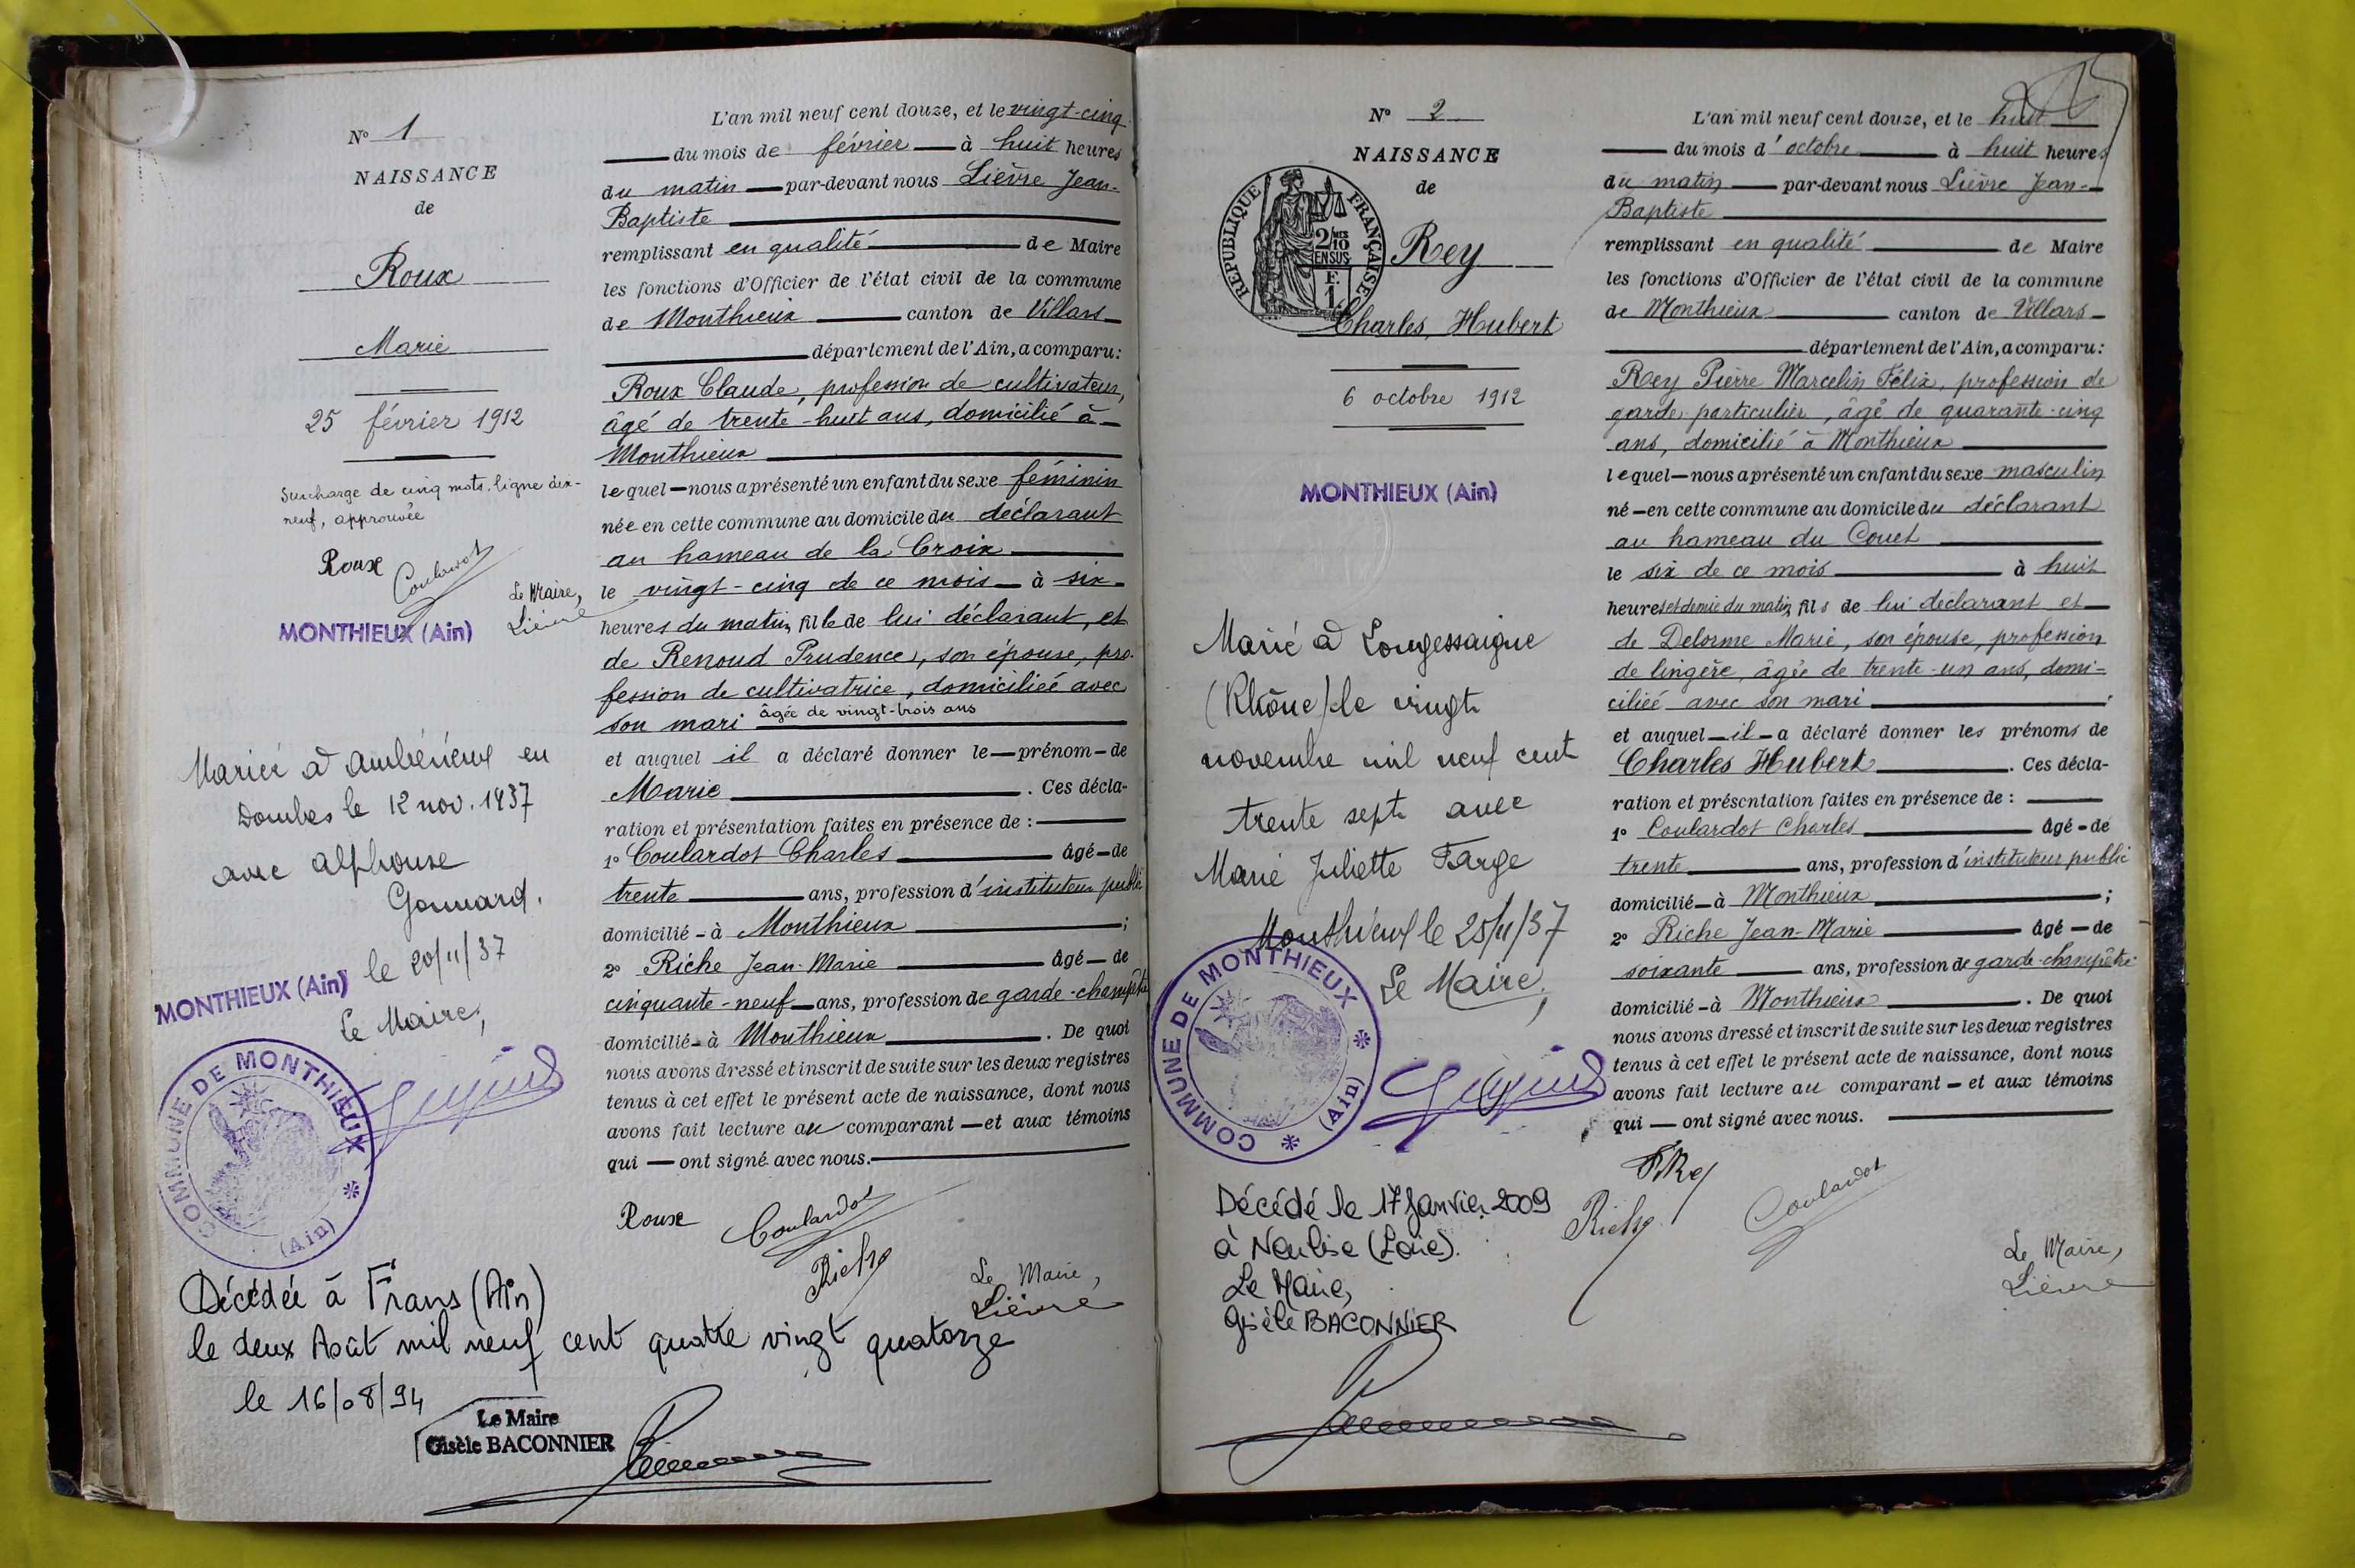 N° 1
NAISSANCE
de
Roux
Marie
25 février 1912
Surcharge de cinq mots, ligne dix-
neuf, approuvée
Roux
Coulardot
Le Maire,
Lièvre
MONTHIEUX (Ain)
Mariée à Ambérieux en
Dombes le 12 nov. 1937
avec Alphonse
Gonnard.
MONTHIEUX (Ain) le 20/11/37
Le Maire,
COMMUNE DE MONTHIEUX
(Ain)
L'an mil neuf cent douze, et le vingt-cinq
du mois de février à huit heures
du matin par-devant nous Lièvre Jean-
Baptiste
remplissant en qualité de Maire
les fonctions d'Officier de l'état civil de la commune
de Monthieux canton de Villars
département de l'Ain, a comparu:
Roux Claude, profession de cultivateur,
âgé de trente-huit ans, domicilié à
Monthieux
lequel nous a présenté un enfant du sexe féminin
née en cette commune au domicile du déclarant
au hameau de la Croix
le vingt-cinq de ce mois à six
heures du matin, fille de lui déclarant, et
de Renoud Prudence, son épouse, pro-
fession de cultivatrice, domiciliée avec
son mari âgée de vingt-trois ans
et auquel il a déclaré donner le prénom de
Marie. Ces décla-
ration et présentation faites en présence de :
1° Coulardot Charles âgé de
trente ans, profession d'instituteur public
domicilié à Monthieux ;
2° Riche Jean-Marie âgé de
cinquante-neuf ans, profession de garde-champêtre
domicilié à Monthieux. De quoi
nous avons dressé et inscrit de suite sur les deux registres
tenus à cet effet le présent acte de naissance, dont nous
avons fait lecture au comparant et aux témoins
qui ont signé avec nous.
Roux
Coulardot
Riche
Le Maire,
Lièvre
Décédée à Frans (Ain)
le deux Août mil neuf cent quatre vingt quatorze
le 16/08/94
Le Maire
Gisèle BACONNIER
N° 2
NAISSANCE
de
REPUBLIQUE FRANÇAISE
2/10
EN SUS
F.
1.
Rey
Charles, Hubert
6 octobre 1912
MONTHIEUX (Ain)
Marié à Longessaigne
(Rhône) le vingt
novembre mil neuf cent
trente sept avec
Marie Juliette Farge
Monthieux le 25/11/37
Le Maire,
COMMUNE DE MONTHIEUX
(Ain)
Décédé le 17 Janvier 2009
à Neulise (Loire).
Le Maire,
Gisèle BACONNIER
L'an mil neuf cent douze, et le huit
du mois d'octobre à huit heures
du matin par-devant nous Lièvre Jean-
Baptiste
remplissant en qualité de Maire
les fonctions d'Officier de l'état civil de la commune
de Monthieux canton de Villars
département de l'Ain, a comparu:
Rey Pierre Marcelin Félix, profession de
garde particulier, âgé de quarante-cinq
ans, domicilié à Monthieux
lequel nous a présenté un enfant du sexe masculin
né en cette commune au domicile du déclarant
au hameau du Couet
le six de ce mois à huit
heures et demie du matin, fils de lui déclarant et
de Delorme Marie, son épouse, profession
de lingère, âgée de trente-un ans, domi-
ciliée avec son mari ;
et auquel il a déclaré donner les prénoms de
Charles Hubert. Ces décla-
ration et présentation faites en présence de :
1° Coulardot Charles âgé de
trente ans, profession d'instituteur public
domicilié à Monthieux ;
2° Riche Jean-Marie âgé de
soixante ans, profession de garde-champêtre
domicilié à Monthieux. De quoi
nous avons dressé et inscrit de suite sur les deux registres
tenus à cet effet le présent acte de naissance, dont nous
avons fait lecture au comparant et aux témoins
qui ont signé avec nous.
Rey
Riche
Coulardot
Le Maire,
Lièvre